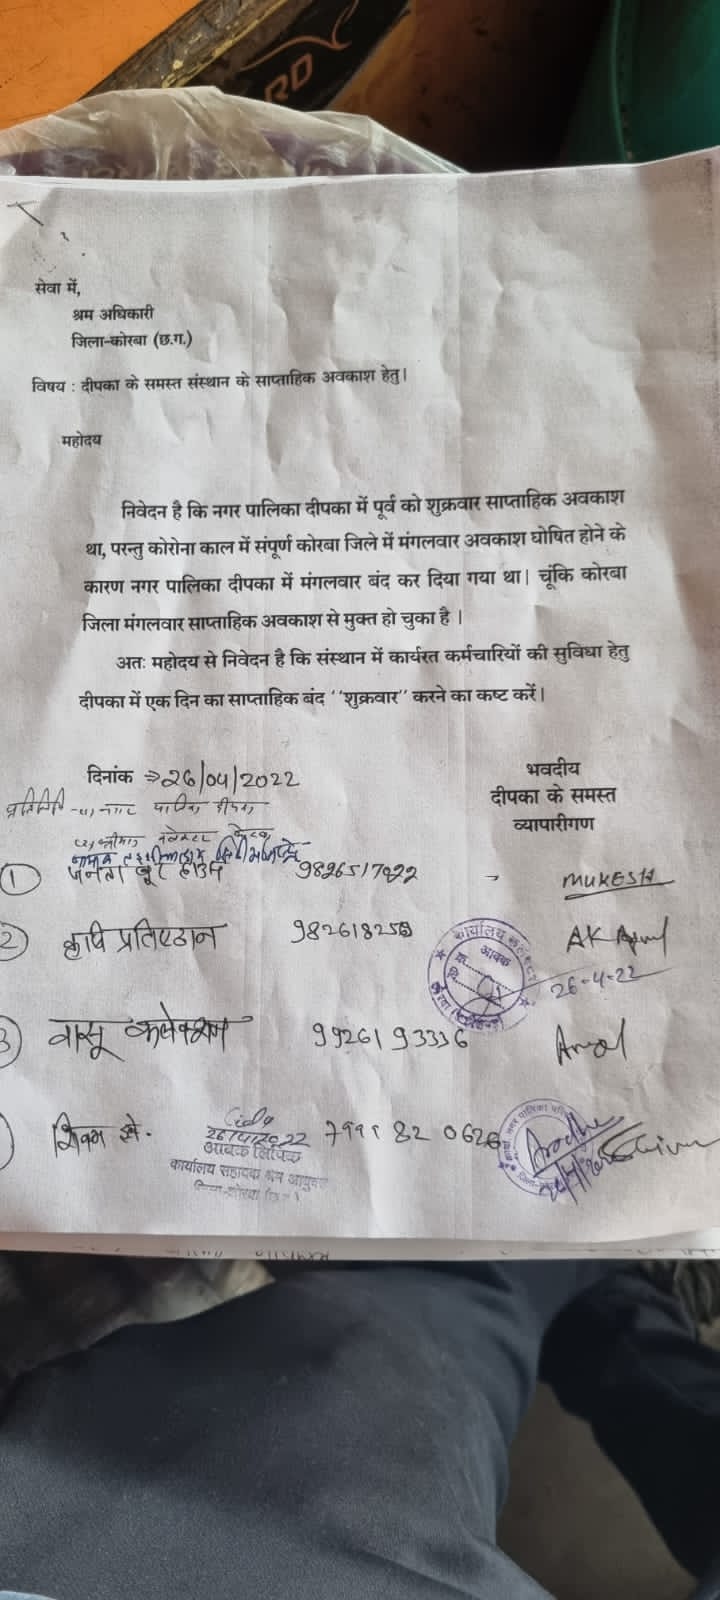 RD
सेवा में,
श्रम अधिकारी
जिला-कोरबा (छ.ग.)
विषय : दीपका के समस्त संस्थान के साप्ताहिक अवकाश हेतु।
महोदय
निवेदन है कि नगर पालिका दीपका में पूर्व को शुक्रवार साप्ताहिक अवकाश
था, परन्तु कोरोना काल में संपूर्ण कोरबा जिले में मंगलवार अवकाश घोषित होने के
कारण नगर पालिका दीपका में मंगलवार बंद कर दिया गया था। चूंकि कोरबा
जिला मंगलवार साप्ताहिक अवकाश से मुक्त हो चुका है ।
अतः महोदय से निवेदन है कि संस्थान में कार्यरत कर्मचारियों की सुविधा हेतु
दीपका में एक दिन का साप्ताहिक बंद ''शुक्रवार'' करने का कष्ट करें।
दिनांक ⇒ 26/04/2022
भवदीय
दीपका के समस्त
व्यापारीगण
प्रतिलिपि - नगर पालिका दीपका
कलेक्टर
① जनता हाउस 9826517922 MUKESH
② कृषि प्रतिष्ठान AK
कार्यालय
आवक
26-4-22
3 वासू कलेक्शन 9926193336
शिवम इले. 0626
26/4/2022
आवक लिपिक
कार्यालय सहायक श्रम आयुक्त
जिला-कोरबा (छ.ग.)
नगर पालिका